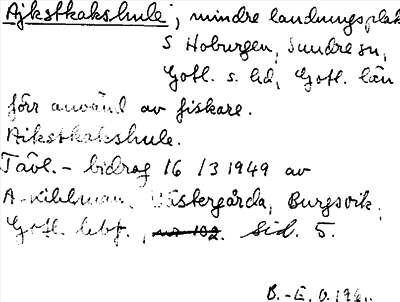 Ajkstkakshule; mindre landningsplats
S Hoburgen, Sundre sn,
Gotl. s. hd, Gotl. län
förr använd av fiskare.
Ajkstkakshule.
Tävl.-bidrag 16/3 1949 av
A. Västergårda, Burgsvik,
Gotl. sid. 5.
B.-E. O.